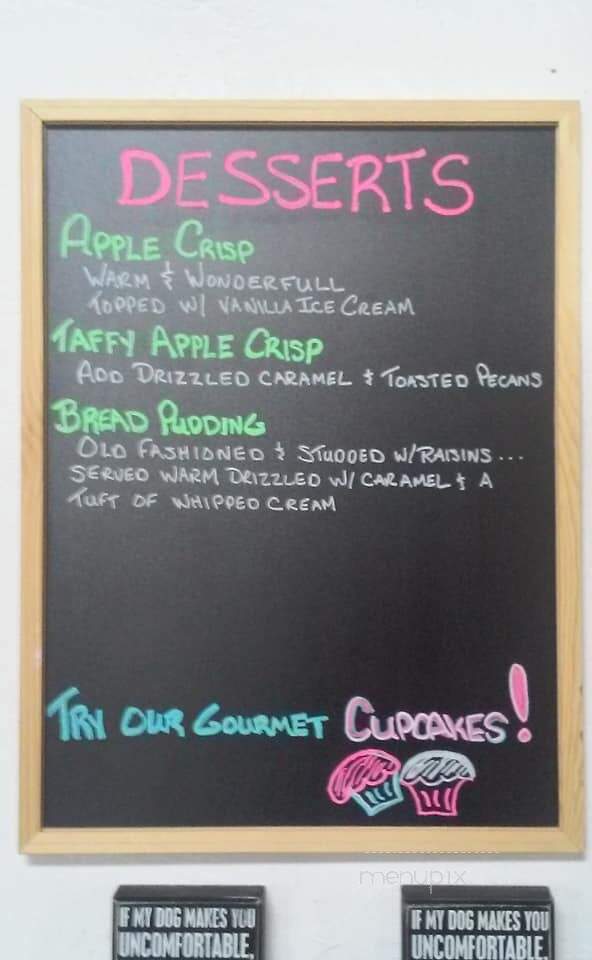 DESSERTS
APPLE CRISP
WARM & WONDERFULL
TOPPED W/ VANILLA ICE CREAM
TAFFY APPLE CRISP
ADD DRIZZLED CARAMEL & TOASTED PECANS
BREAD PUDDING
OLD FASHIONED & STUDDED W/ RAISINS...
SERVED WARM DRIZZLED W/ CARAMEL & A
TUFT OF WHIPPED CREAM
TRY OUR GOURMET CUPCAKES!
menupix
IF MY DOG MAKES YOU
UNCOMFORTABLE,
IF MY DOG MAKES YOU
UNCOMFORTABLE,